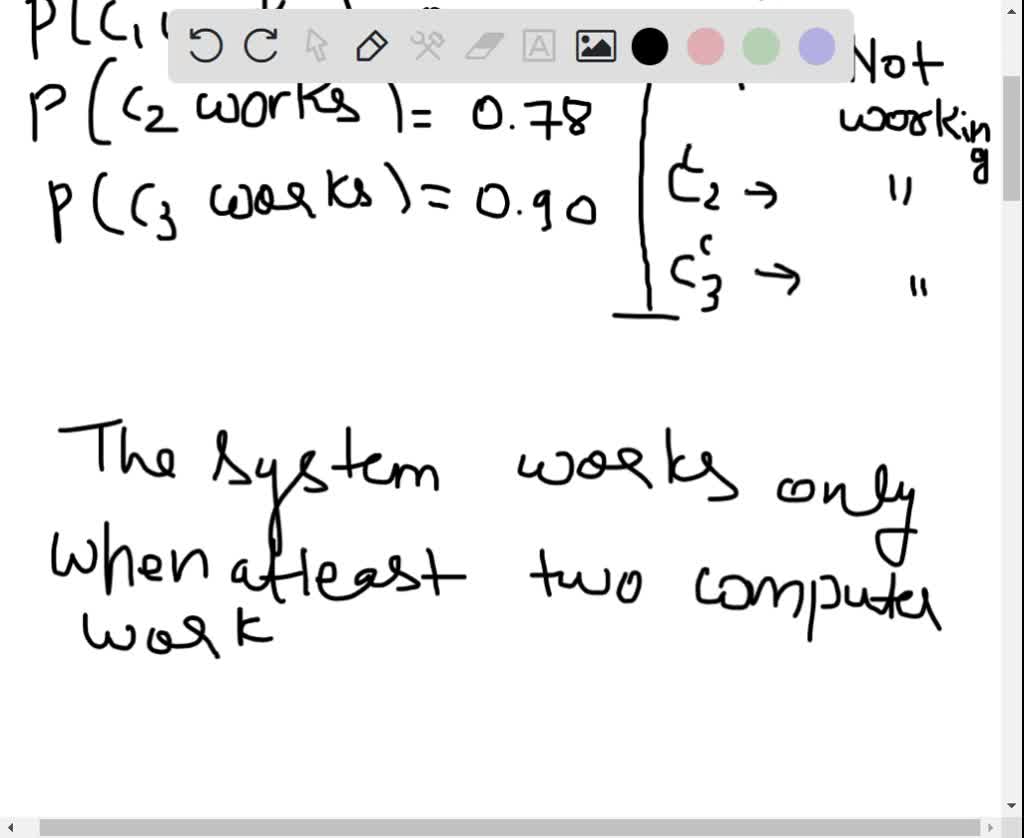 P(C₁
Not
P(C2 works) = 0.78
working
P(C3 works) = 0.90
C2ᶜ → "
C3ᶜ → "
The system works only
when atleast two computer
work
A